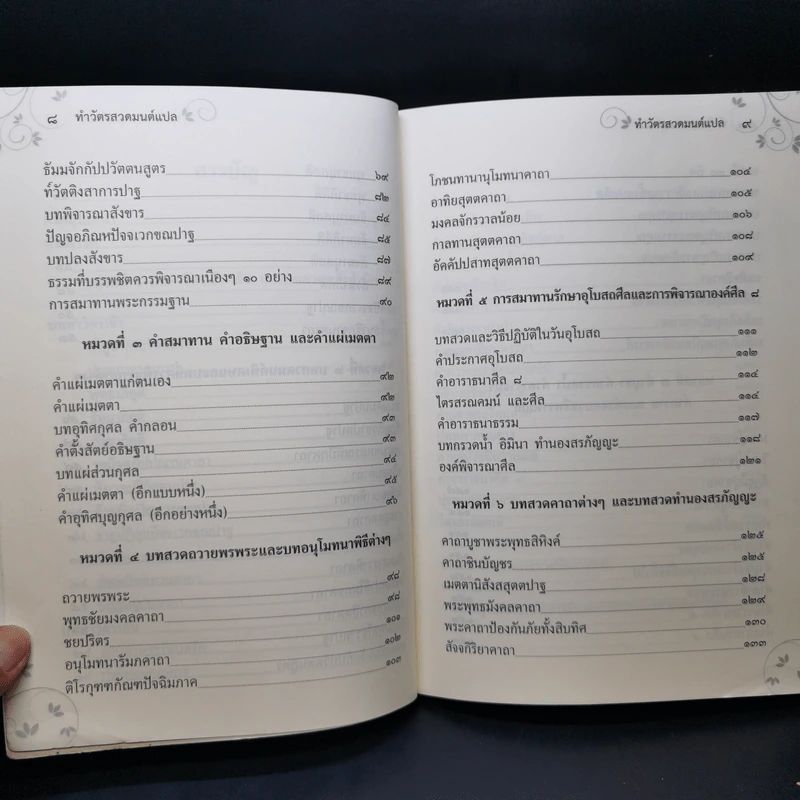 ๘ ทำวัตรสวดมนต์แปล
ธัมมจักกัปปวัตตนสูตร ๖๙
ท๎วัตติงสาการปาฐ ๘๒
บทพิจารณาสังขาร ๘๔
ปัญจอภิณหปัจจเวกขณปาฐ ๘๕
บทปลงสังขาร ๘๗
ธรรมที่บรรพชิตควรพิจารณาเนืองๆ ๑๐ อย่าง ๘๙
การสมาทานพระกรรมฐาน ๙๐
หมวดที่ ๓ คำสมาทาน คำอธิษฐาน และคำแผ่เมตตา
คำแผ่เมตตาแก่ตนเอง ๙๒
คำแผ่เมตตา ๙๒
บทอุทิศกุศล คำกลอน ๙๓
คำตั้งสัตย์อธิษฐาน ๙๓
บทแผ่ส่วนกุศล ๙๔
คำแผ่เมตตา (อีกแบบหนึ่ง) ๙๕
คำอุทิศบุญกุศล (อีกอย่างหนึ่ง) ๙๖
หมวดที่ ๔ บทสวดถวายพรพระและบทอนุโมทนาพิธีต่างๆ
ถวายพรพระ ๙๘
พุทธชัยมงคลคาถา ๙๘
ชยปริตร ๑๐๑
อนุโมทนารัมภคาถา ๑๐๒
ติโรกุฑฑกัณฑปัจฉิมภาค ๑๐๓
ทำวัตรสวดมนต์แปล ๙
โภชนทานานุโมทนาคาถา ๑๐๔
อาทิยสุตตคาถา ๑๐๕
มงคลจักรวาลน้อย ๑๐๖
กาลทานสุตตคาถา ๑๐๘
อัคคัปปสาทสุตตคาถา ๑๐๙
หมวดที่ ๕ การสมาทานรักษาอุโบสถศีลและการพิจารณาองค์ศีล ๘
บทสวดและวิธีปฏิบัติในวันอุโบสถ ๑๑๑
คำประกาศอุโบสถ ๑๑๒
คำอาราธนาศีล ๘ ๑๑๔
ไตรสรณคมน์ และศีล ๑๑๔
คำอาราธนาธรรม ๑๑๗
บทกรวดน้ำ อิมินา ทำนองสรภัญญะ ๑๑๘
องค์พิจารณาศีล ๑๒๑
หมวดที่ ๖ บทสวดคาถาต่างๆ และบทสวดทำนองสรภัญญะ
คาถาบูชาพระพุทธสิหิงค์ ๑๒๕
คาถาชินบัญชร ๑๒๕
เมตตานิสังสสุตตปาฐ ๑๒๘
พระพุทธมังคลคาถา ๑๒๙
พระคาถาป้องกันภัยทั้งสิบทิศ ๑๓๐
สัจจกิริยาคาถา ๑๓๓